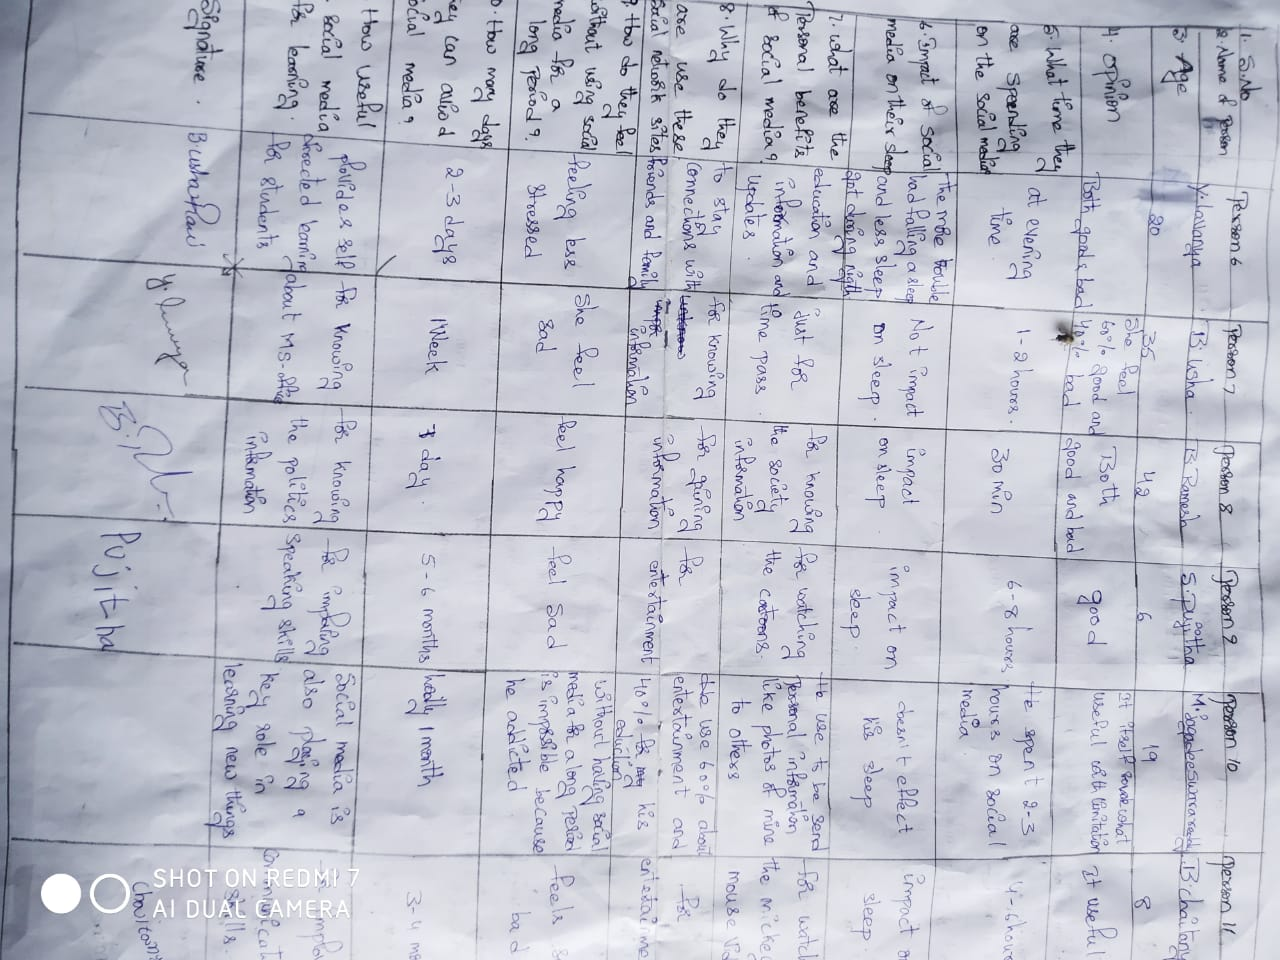 1. S.No
Person 6
Person 7
Person 8
Person 9
Person 10
Person 11
2. Name of Person
Y. Lavanya
B. Usha.
B Ramesh
S. Pujitha
M. Jagadeeswarareddy
B. Chaitany
3. Age
20
35
42
6
19
8
4. opinion
Both good & bad
She feel
60% good and
40% bad
Both
good and bad
good
It itself somewhat
useful with limitation
It useful
5. What time they
are spending
on the social media
at evening
time.
1-2 hours.
30 min
6-8 hours.
He spent 2-3
hours on social
media
4-6 hour
6. Impact of social
media on their sleep
the more trouble
had falling asleep
and less sleep
got during nigth
Not impact
on sleep.
impact
on sleep.
impact on
sleep.
doesn't effect
his sleep
impact o
sleep.
7. what are the
Personal benefits
of social media?
education and
information and
updates.
just for
time pass.
for knowing
the society
information
for watching
the cartoons.
He use to be send
Personal information
like photos of mine
to others
for watch
the micke
mouse vid
8. Why do they
are use these
Social network sites
to stay
connections with
friends and family
for knowing
information
for gaining
information
for
entertainment
He use 60% about
entertainment and
40% for his
eduction
for
entertainme
9. How do they feel
without using social
media for a
long period?
feeling less
stressed
She feel
sad
feel happy
feel sad
without having social
media for a long period
is impossible because
he addicted
feels
bad
0. How many days
hey can avoid
ocial media?
2-3 days
1 Week
1 day.
5-6 months
hadly 1 month
3-4 m
. How useful
social media
for learning.
povides self
directed learning
for students
for knowing
about MS-office
for knowing
the politics
information
for improving
speaking skills
Social media is
also playing a
key role in
learning new things
impro
communicat
skills
Signature.
B. usha Rani
Pujitha
SHOT ON REDMI 7
AI DUAL CAMERA